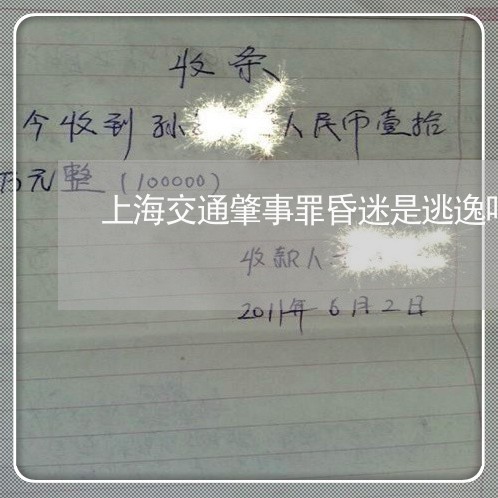 收条
今收到孙 人民币壹拾
万元整（100000）
上海交通肇事罪昏迷是逃逸
收款人
2011年6月2日